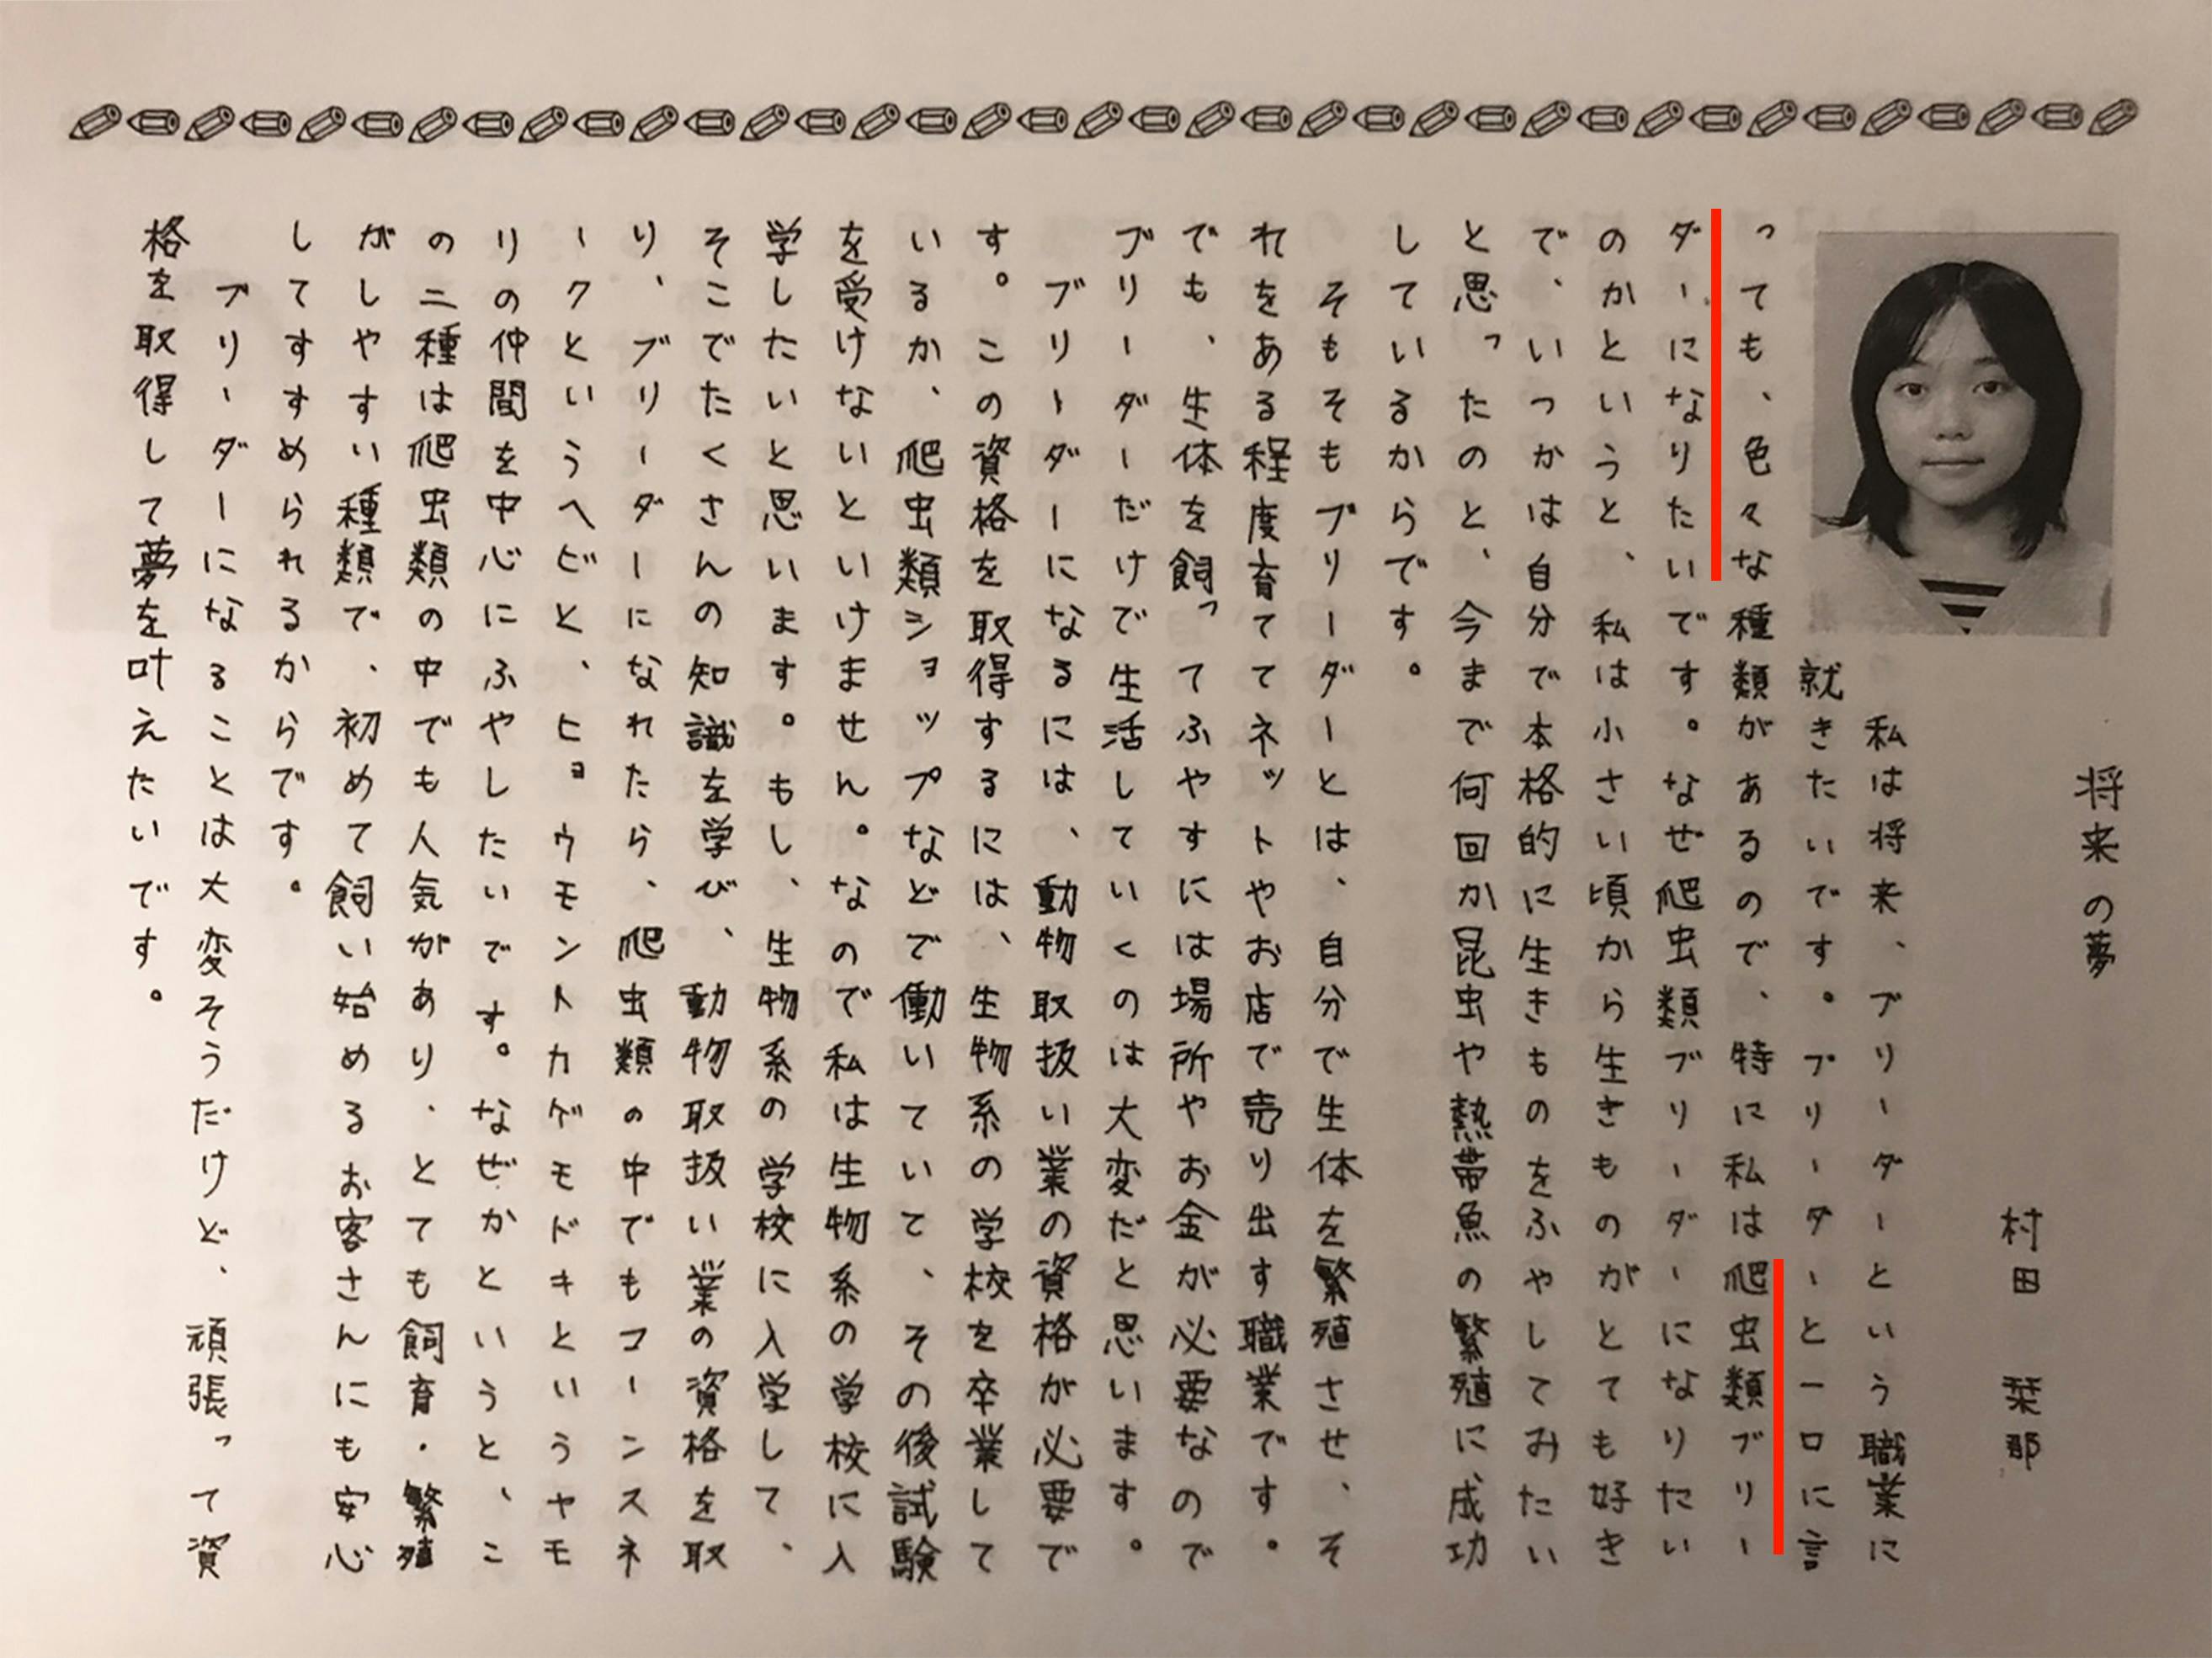 将来の夢
村田 栞那
私は将来、ブリーダーという職業に
就きたいです。ブリーダーと一口に言
っても、色々な種類があるので、特に私は爬虫類ブリー
ダーになりたいです。なぜ爬虫類ブリーダーになりたい
のかというと、私は小さい頃から生きものがとても好き
で、いつかは自分で本格的に生きものをふやしてみたい
と思ったのと、今まで何回か昆虫や熱帯魚の繁殖に成功
しているからです。
そもそもブリーダーとは、自分で生体を繁殖させ、そ
れをある程度育ててネットやお店で売り出す職業です。
でも、生体を飼ってふやすには場所やお金が必要なので
ブリーダーだけで生活していくのは大変だと思います。
ブリーダーになるには、動物取扱い業の資格が必要で
す。この資格を取得するには、生物系の学校を卒業して
いるか、爬虫類ショップなどで働いていて、その後試験
を受けないといけません。なので私は生物系の学校に入
学したいと思います。もし、生物系の学校に入学して、
そこでたくさんの知識を学び、動物取扱い業の資格を取
り、ブリーダーになれたら、爬虫類の中でもコーンスネ
ークというヘビと、ヒョウモントカゲモドキというヤモ
リの仲間を中心にふやしたいです。なぜかというと、こ
の二種は爬虫類の中でも人気があり、とても飼育・繁殖
がしやすい種類で、初めて飼い始めるお客さんにも安心
してすすめられるからです。
ブリーダーになることは大変そうだけど、頑張って資
格を取得して夢を叶えたいです。